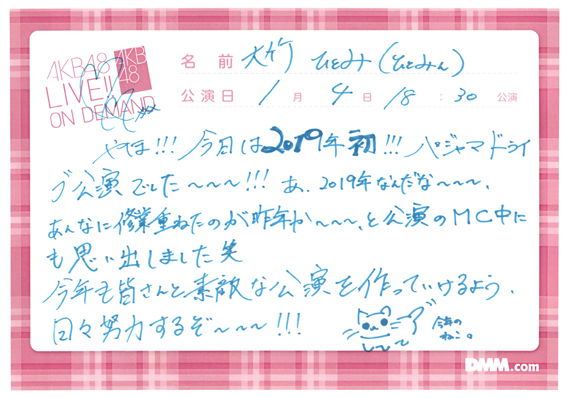 AKB48
LIVE!!
ON DEMAND
AKB
48
名前 大竹 ひとみ(ひとみん)
公演日 1月4日 18:30 公演
やほ!!! 今日は2019年初!!! パジャマドライ
ブ公演でした〜〜〜!!! あ、2019年なんだな〜〜〜、
あんなに修業重ねたのが昨年か〜〜〜、と公演のMC中に
も思い出しました笑
今年も皆さんと素敵な公演を作っていけるよう、
日々努力するぞ〜〜〜!!!
今年の
ねこ。
DMM.com